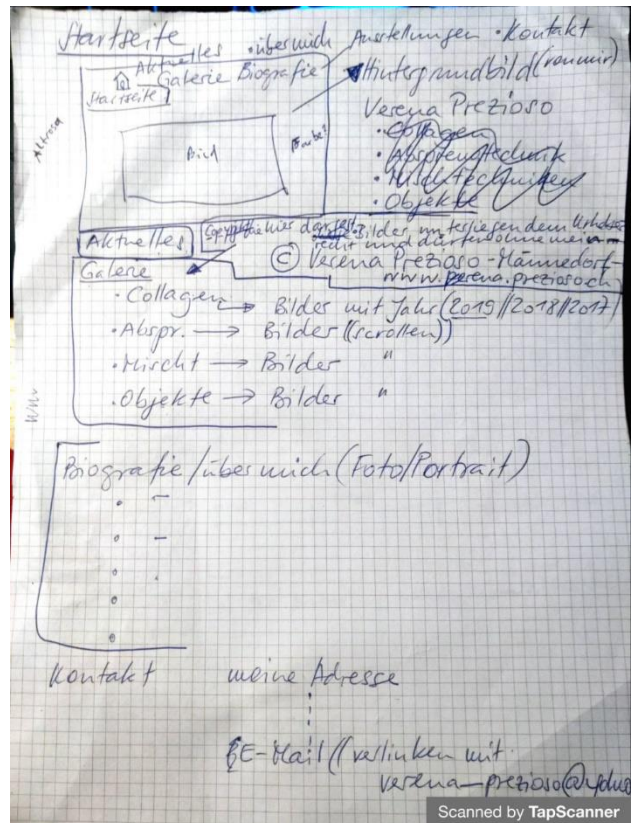 Startseite
Aktuelles • über mich Ausstellungen • Kontakt
Galerie Biografie
Startseite
Hintergrundbild (von mir)
Verena Prezioso
Altrosa
Bild
Farbe?
• Collagen
• Absprengtechnik
• Mischtechniken
• Objekte
Aktuelles
Copyright hier Bilder unterliegen dem
recht und dürfen ohne mein
© Verena Prezioso - Männedorf -
www.verena.prezioso.ch
Galerie
• Collagen → Bilder mit Jahr (2019//2018//2017)
• Abspr. → Bilder ((scrollen))
• Mischt → Bilder "
• Objekte → Bilder "
Biografie/über mich (Foto/Portrait)
Kontakt meine Adresse
E-Mail (( verlinken mit
Scanned by TapScanner